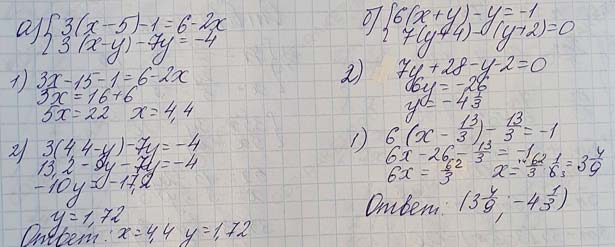 а) { 3(x-5)-1=6-2x
3(x-y)-7y=-4
1) 3x-15-1=6-2x
5x=16+6
5x=22 x=4,4
2) 3(4,4-y)-7y=-4
13,2-3y-7y=-4
-10y=-17,2
y=1,72
Ответ: x=4,4 y=1,72
б) { 6(x+y)-y=-1
7(y+4)-(y+2)=0
2) 7y+28-y-2=0
6y=-26
y=-4 1/3
1) 6(x-13/3)-13/3=-1
6x-26-13/3=-1
6x=62/3 x=62/3·1/6=3 4/9
Ответ: (3 4/9; -4 1/3)